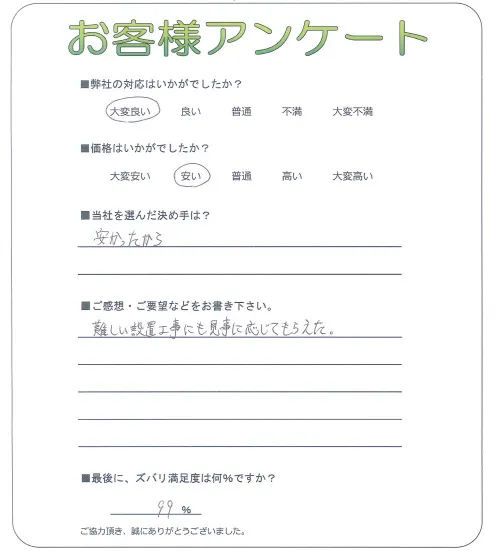 お客様アンケート
■弊社の対応はいかがでしたか？
大変良い 良い 普通 不満 大変不満
■価格はいかがでしたか？
大変安い 安い 普通 高い 大変高い
■当社を選んだ決め手は？
安かったから
■ご感想・ご要望などをお書き下さい。
難しい設置工事にも見事に応じてもらえた。
■最後に、ズバリ満足度は何%ですか？
99 %
ご協力頂き、誠にありがとうございました。